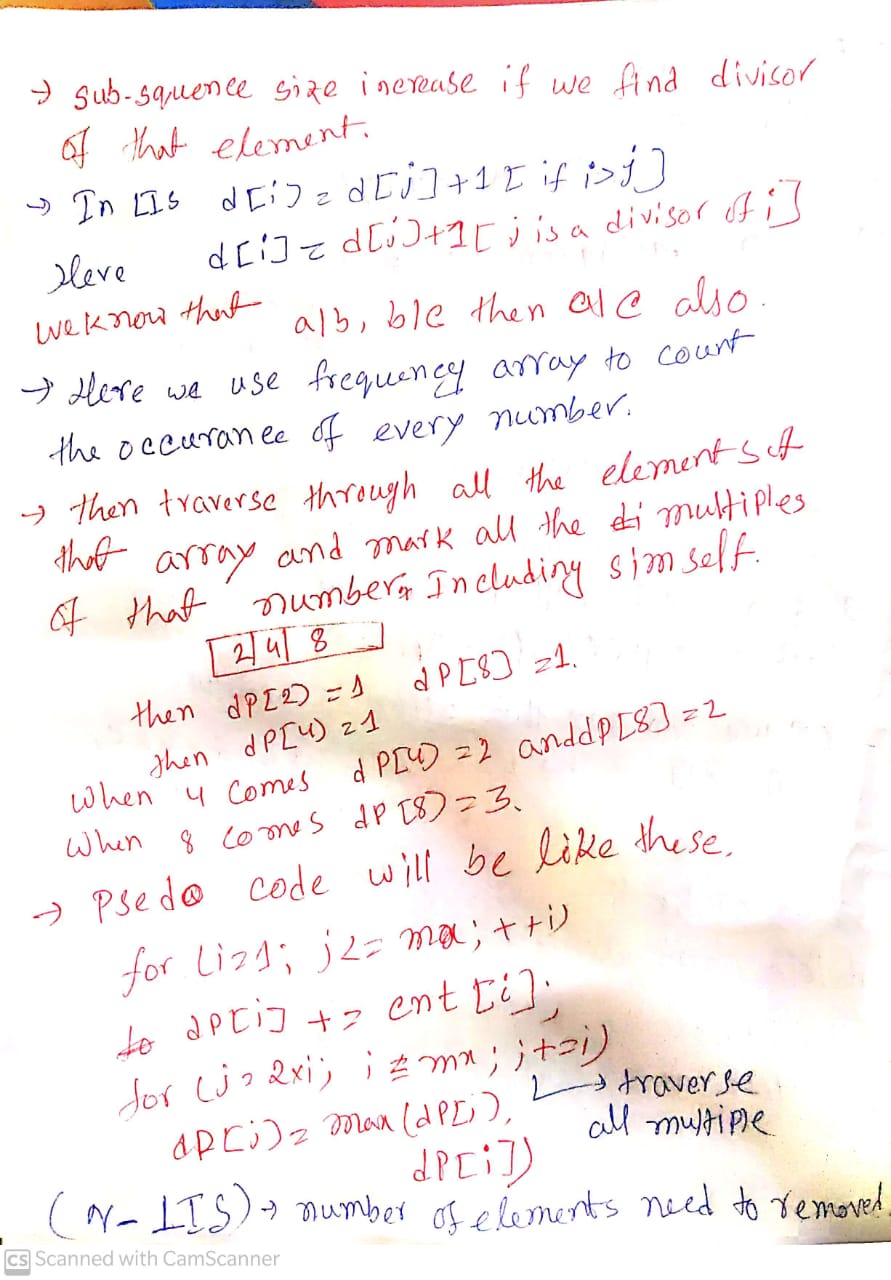 → sub-squence size increase if we find divisor
of that element.
→ In LIS d[i] = d[j]+1 [ if i>j ]
Here d[i] = d[j]+1 [ j is a divisor of i]
we know that a|b, b|c then a|c also.
→ Here we use frequency array to count
the occurance of every number.
→ then traverse through all the elements of
that array and mark all the multiples
of that number Including simself.
2|4|8
then dP[2] = 1 dP[8] =1.
then dP[4] =1
When 4 comes dP[4] =2 and dP[8] =2
When 8 comes dP[8] =3.
→ Psedo code will be like these.
for (i=1; j<= mx; ++i)
dP[i] += cnt [i];
for (j= 2xi; i ≤ mx; j+=i)
↳ traverse
all multiple
dP[j] = max (dP[j],
dP[i])
(N-LIS) → number of elements need to removed.
CS Scanned with CamScanner